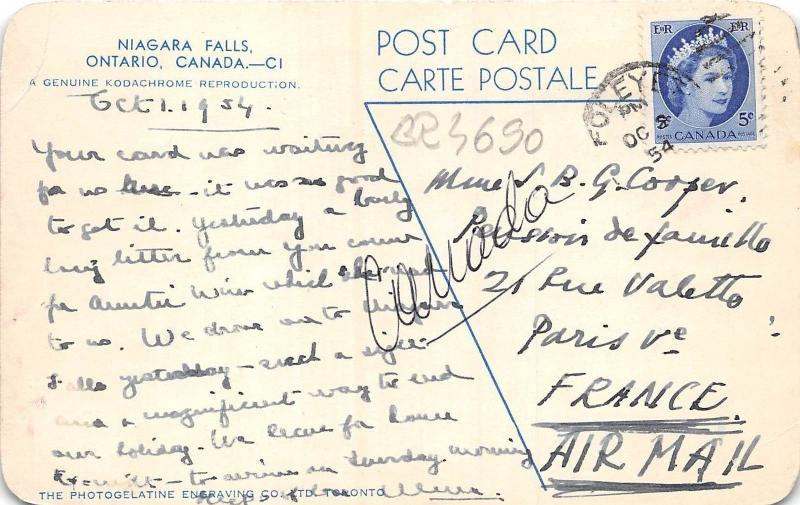 NIAGARA FALLS,
ONTARIO, CANADA.—C1
A GENUINE KODACHROME REPRODUCTION.
POST CARD
CARTE POSTALE
E R E R
5¢
POSTES CANADA POSTAGE
FOLEYET
PM
OC
54
Oct 1. 1954.
BR3690
Canada
Your card was waiting
for us here - it was so good
to get it. Yesterday a
long letter from you came
for Auntie Win which she read
to us. We drove out to Niagara
Falls yesterday - such a
and a magnificent way to end
our holiday. We leave for home
to-nite - to arrive on Sunday morning
Mme B. G. Cooper.
Pension de famille
21 Rue Valette
Paris Ve
FRANCE.
AIR MAIL
THE PHOTOGELATINE ENGRAVING CO. LTD. TORONTO